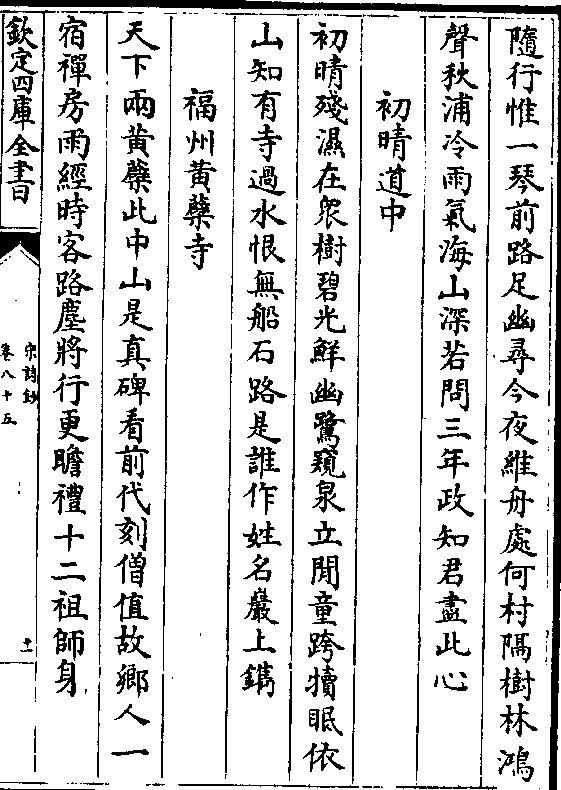 隨行惟一琴前路足幽尋今夜維舟處何村隔樹林鴻
聲秋浦冷雨氣海山深若問三年政知君盡此心
初晴道中
初晴殘濕在衆樹碧光鮮幽鷺窺泉立閒童跨犢眠依
山知有寺過水恨無船石路是誰作姓名巖上鐫
福州黄蘗寺
天下兩黄蘗此中山是真碑看前代刻僧值故鄉人一
宿禪房雨經時客路塵將行更瞻禮十二祖師身
欽定四庫全書
宋詩鈔
卷八十五
十一